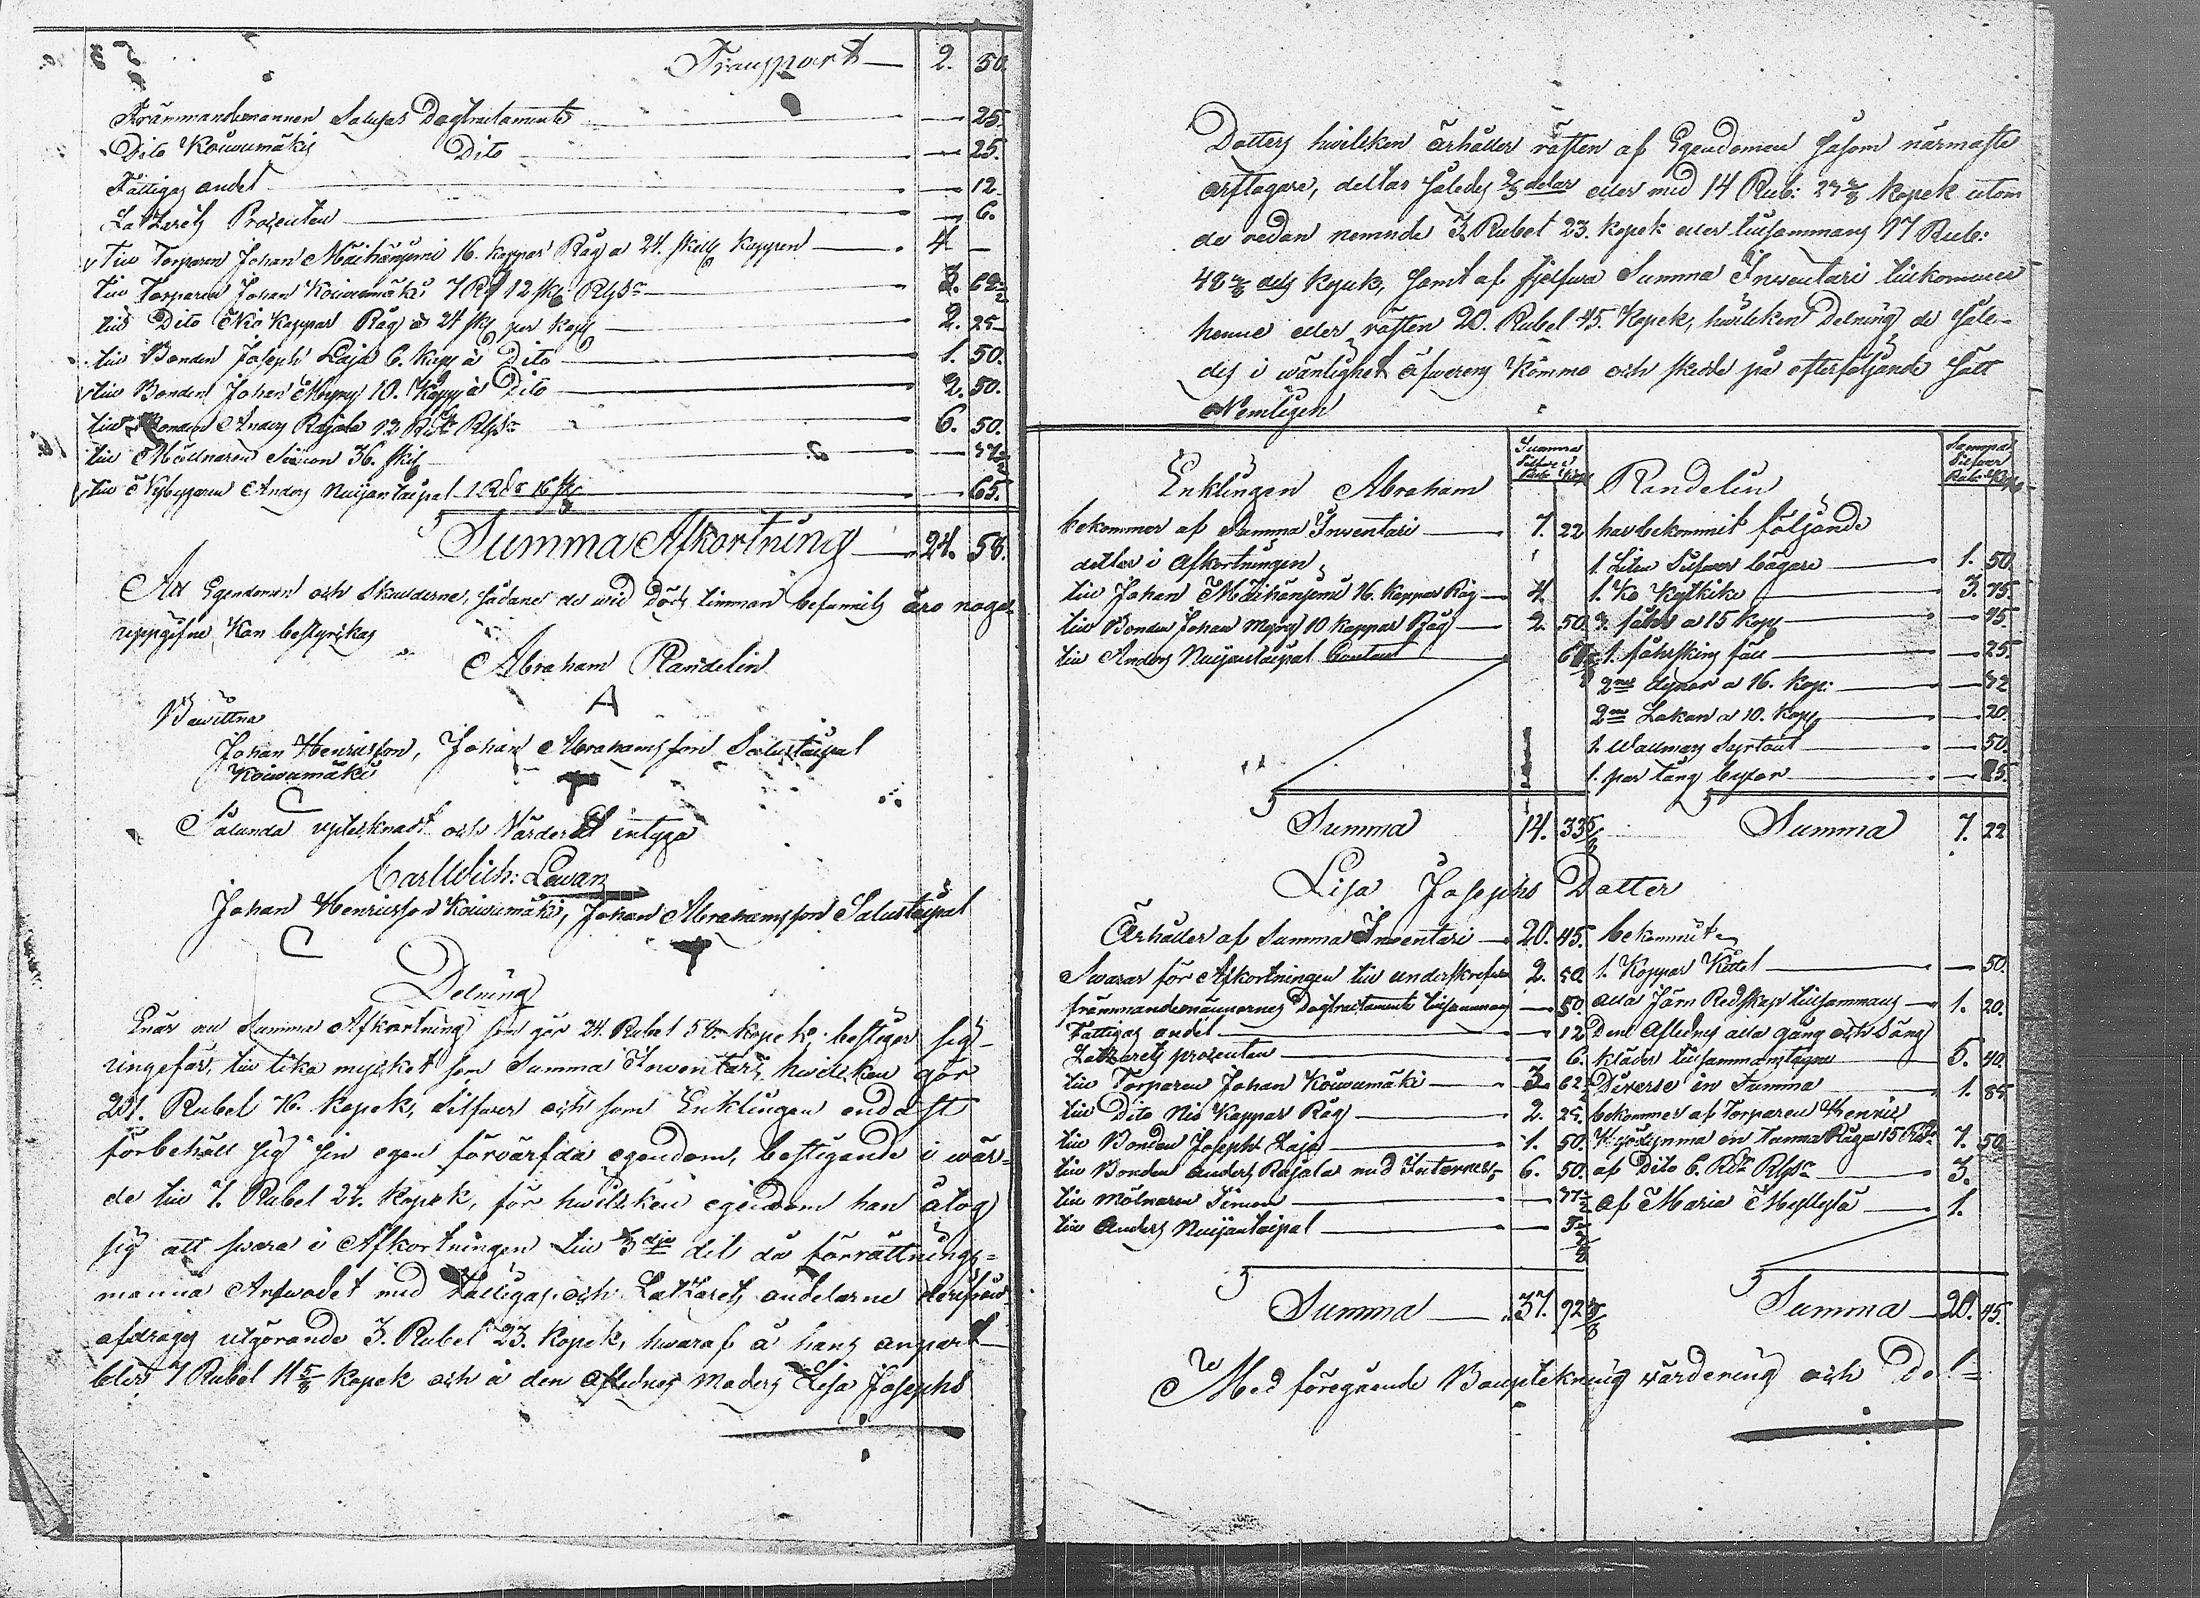 Transport — 2. 50.
Främmandemannen Salusas Dagtractamente — 25.
Dito Kouwumäkis Dito — 25.
Fattigas andel — 12
Latzaretz Prozenten — 6.
till Torparen Johan Maihänjemi 16. kappar Råg a 24. skill kappen — 4 —
till Torparen Johan Kouwumäki 7 Rd 12 sk Rgs — 3. 62 1/2
till Dito Nio kappar Råg a 24 sk per kapp — 2. 25
till Bonden Joseph Laja 6. kapp a Dito — 1. 50.
till Bonden Johan Myry 10. kapp a Dito — 2. 50.
till Bonden Anders Rajala 13 Rd Rgs — 6. 50.
till Möllnaren Simon 36. skil — 37 1/2
till Nybyggaren Anders Nuijantaipal 1 Rd 16 sk — 65.
Summa Afkortning — 24. 58.
Att Egendomen och skulderne, sådane de wid Döds timman befunnits äro noga
uppgifne, kan bestyrkas
Abraham Randelin
A
Bewittna
Johan Henricsson, Johan Abrahamsson Salustaipal
Kouwumäki
C
Sålunda uptecknadt och Värderadt intyga
Carl Wilh: Lewan
Johan Henricsson Kouwumäki, Johan Abrahamsson Salustaipal
C
Delning
Enär nu Summa Afkortning som gör 24. Rubel 58 kopek, bestiger sig
ungefär, till lika mycket som Summa Inventarii, hwilken gör
Rubel kopek, silfwer och som Enklingen endast
förbehöll sig sin egen förvärfda egendom, bestigande i wär-
de till 7. Rubel 22. kopek, för hwilken egendom han åtog
sig att swara i Afkortningen till 1/3 dje del då förrättnings-
manna Arfwodet med Fattigas och Latzaretz andelarne derifrån
afdrages utgörande 3. Rubel 23. kopek, hwaraf å hans anpart
blir 7 Rubel 11 5/8 kopek och å den Aflednes Moders Lisa Josephs
Dotters hwilken ärhåller rästen af Egendomen såsom närmaste
arftagare, deltar således 2/3 delar eller med 14 Rub: kopek utom
de redan nemnde 3. Rubel 23. kopek eller tillsammans 17 Rub:
dels kopek, samt af sjelfwa Summa Inventari tillkommer
henne eller rästen 20. Rubel 45. kopek, hwilken Delning de såle-
des i wänlighet öfwerens kommo och skedde på efterföljande sätt
Nemligen
Enklingen Abraham
Summa Silfwer Rub: Kop
Randelin
Summa Silfwer Rub: Kop
bekommer af Summa Inventari — 7. 22
deltar i Afkortningen
till Johan Maihänjemi 16. kappar Råg — 4
till Bonden Johan Myry 10 kappar Råg — 2. 50
till Anders Nuijantaipal Contant —
Summa 14. 33 5/8
har bekommit följande
1. Liten Silfwer bägare — 1. 50
1. Ko Kytkike — 3. 75.
3. fåhr a 15 kop — 45.
1. fåhrskins fäll — 25.
2ne dynor a 16. kop: — 32
2ne Lakan a 10. kop — 20.
1. Wallmans Syrtout — 50.
1. par tång byxor — 25.
Summa 7. 22
Lisa Josephs Dotter
Ärhåller af Summa Inventari — 20. 45.
Swarar för Afkortningen till underskrefwen 2. 50.
främmandemännernes Dagtractamente tillsammans — 50.
Fattigas andel — 12
Latzaretz prozenten — 6.
till Torparen Johan Kouwumäki — 3. 62 1/2
till Dito Nio kappar Råg — 2. 25.
till Bonden Joseph Laja — 1. 50.
till Bonden Anders Rajala med Intresse 6. 50.
till Mölnaren Simon — 37 1/2
till Anders Nuijantaipal —
Summa — 37. 92
bekommit
1. Koppar Kittel — 50.
alla Järn Redskap tillsammans — 1. 20.
Den Aflednes alla gång och Säng
kläder tillsammanstagne 5. 40
Diverse in Summa — 1. 85.
bekommer af Torparen Henric
en Tunna Råga 15 Rd 7. 50.
af Dito 6. Rd Rgs — 3.
af Maria — 1.
Summa — 20. 45.
Med föregående Bouptekning wärdering och Del-